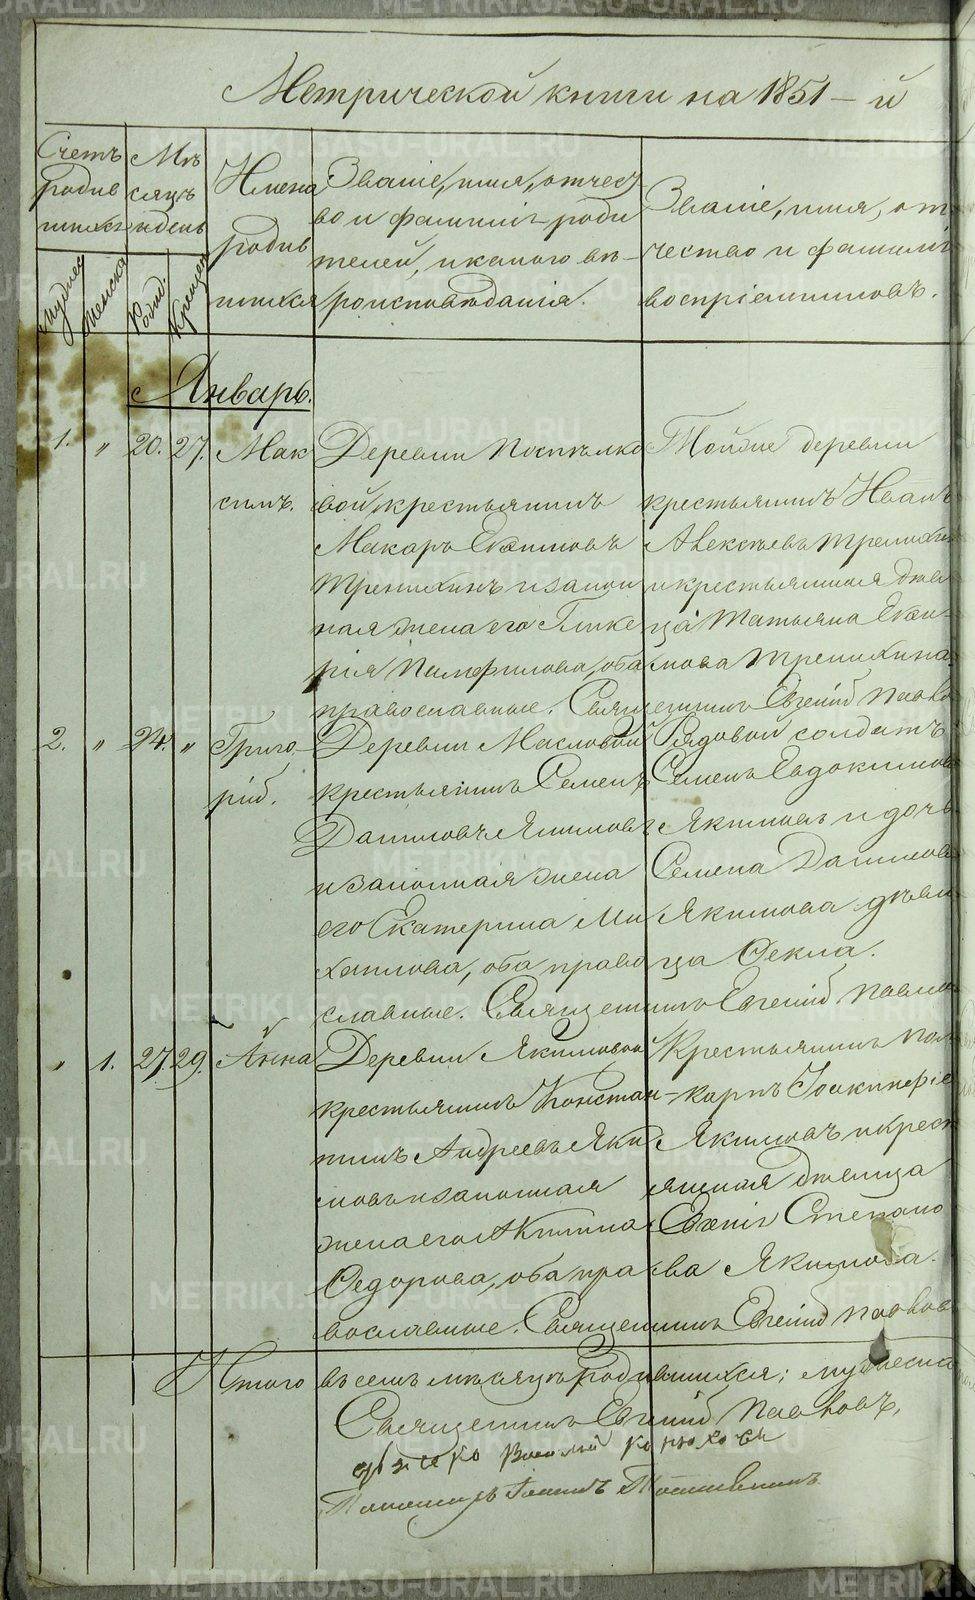 Метрической книги на 1851 – й
Счетъ родив шихся
Мѣ сяцъ и день
Имена родив шихся
Званіе, имя, отчест во и фамилія роди телей, и какого вѣ- роисповѣданія.
Званіе, имя, от чество и фамилія воспріемниковъ.
Мужеска
Женска
Рожд.
Крещен
Январь.
1. „ 20. 27. Мак симъ.
Деревни
вой, крестьянинъ
Макаръ Екимовъ
и закон
ная жена его Глике
рія Памфилова, оба
православные. Священникъ Евгеній
Тойже деревни
крестьянинъ Иванъ
Алексѣевъ
и крестьянская дѣви
ца Татьяна Еки-
мова
2. „ 24. „ Григо- рій.
Деревни Масловой
крестьянинъ Семенъ
Даниловъ Якимовъ
и законная жена
его Екатерина Ми
хаилова, оба право
славные. Священникъ Евгеній
Рядовой солдатъ
Семенъ Евдокимовъ
Якимовъ и дочь
Семена Данилова
Якимова дѣви
ца Ѳекла.
„ 1. 27. 29. Анна
Деревни Якимовой
крестьянинъ Констан-
тинъ Андреевъ Яки
мовъ и законная
жена его Акилина
Ѳедорова, оба пра
вославные. Священникъ Евгеній
Крестьянинъ Поли
карпъ
Якимовъ и крест
янская дѣвица
Степано
ва Якимова.
Итого въ семъ мѣсяцѣ родившихся; мужеска
Священникъ Евгеній
Василій Конюховъ
METRIKI.GASO-URAL.RU